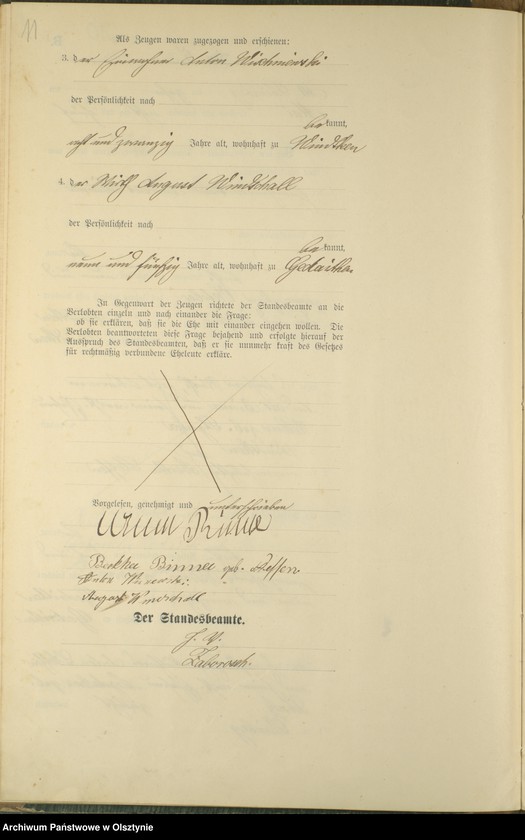 11
Als Zeugen waren zugezogen und erschienen:
3. der Anton
der Persönlichkeit nach
bekannt,
acht und zwanzig Jahre alt, wohnhaft zu Windtken
4. der Wirth August Windschall
der Persönlichkeit nach
bekannt,
neun und fünfzig Jahre alt, wohnhaft zu Gedaithen
In Gegenwart der Zeugen richtete der Standesbeamte an die
Verlobten einzeln und nach einander die Frage:
ob sie erklären, daß sie die Ehe mit einander eingehen wollen. Die
Verlobten beantworteten diese Frage bejahend und erfolgte hierauf der
Ausspruch des Standesbeamten, daß er sie nunmehr kraft des Gesetzes
für rechtmäßig verbundene Eheleute erkläre.
Vorgelesen, genehmigt und unterschrieben
Binna
Binna geb.
Anton
August Windschall
Der Standesbeamte.
J. V.
Archiwum Państwowe w Olsztynie
www.genealogiawarchiwach.pl